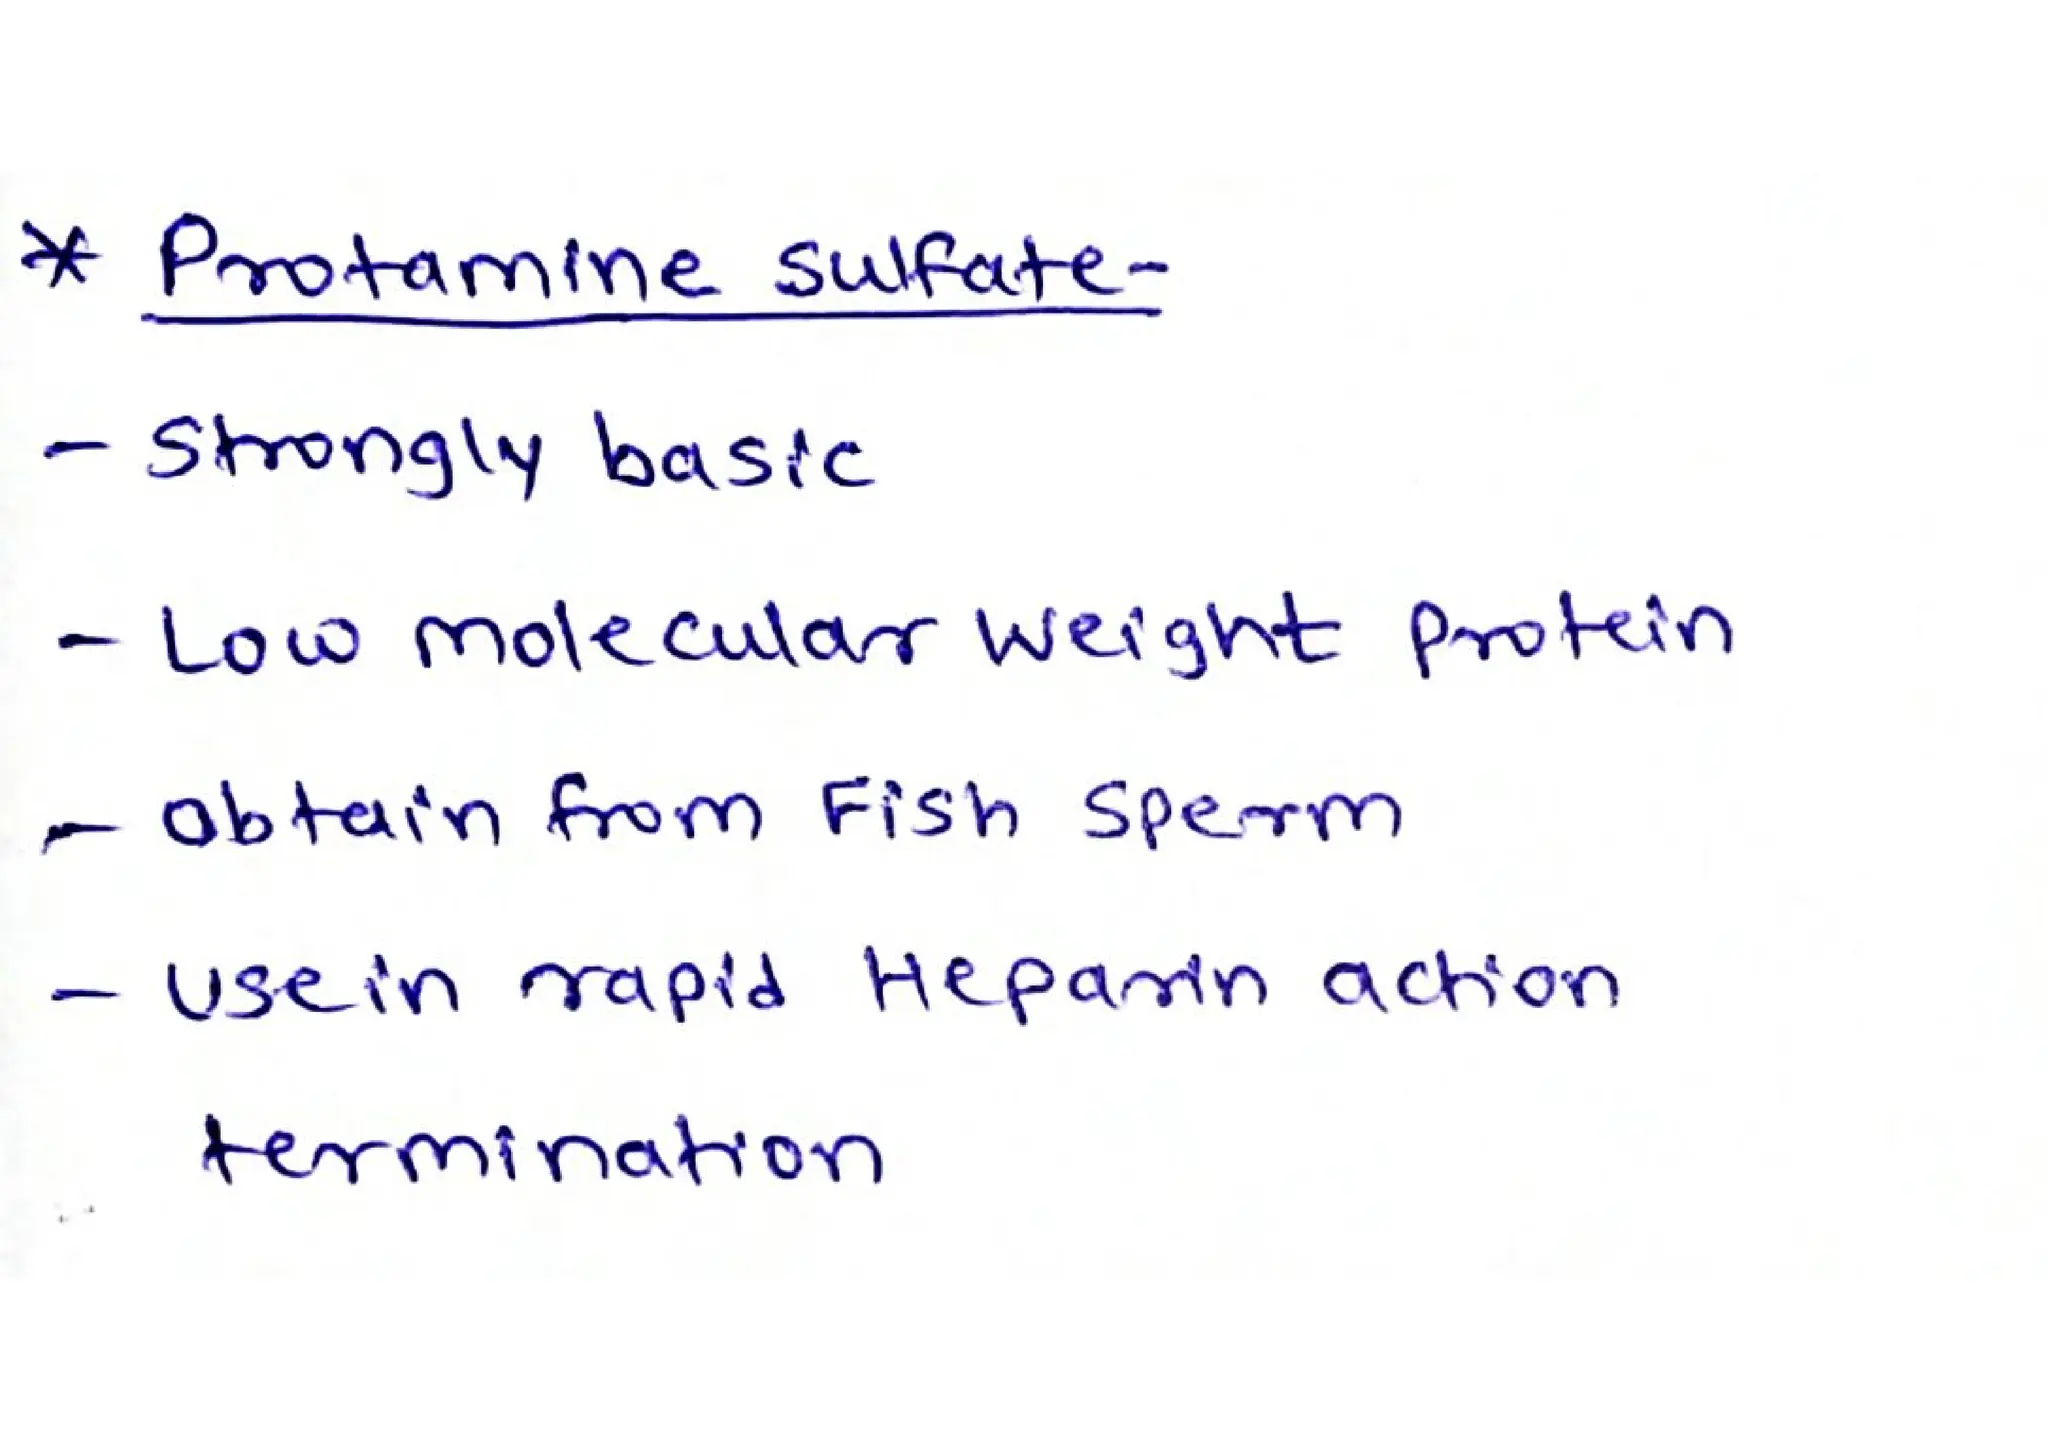 * Protamine sulfate-
- Strongly basic
- Low molecular weight protein
- obtain from Fish sperm
- use in rapid Heparin action
termination